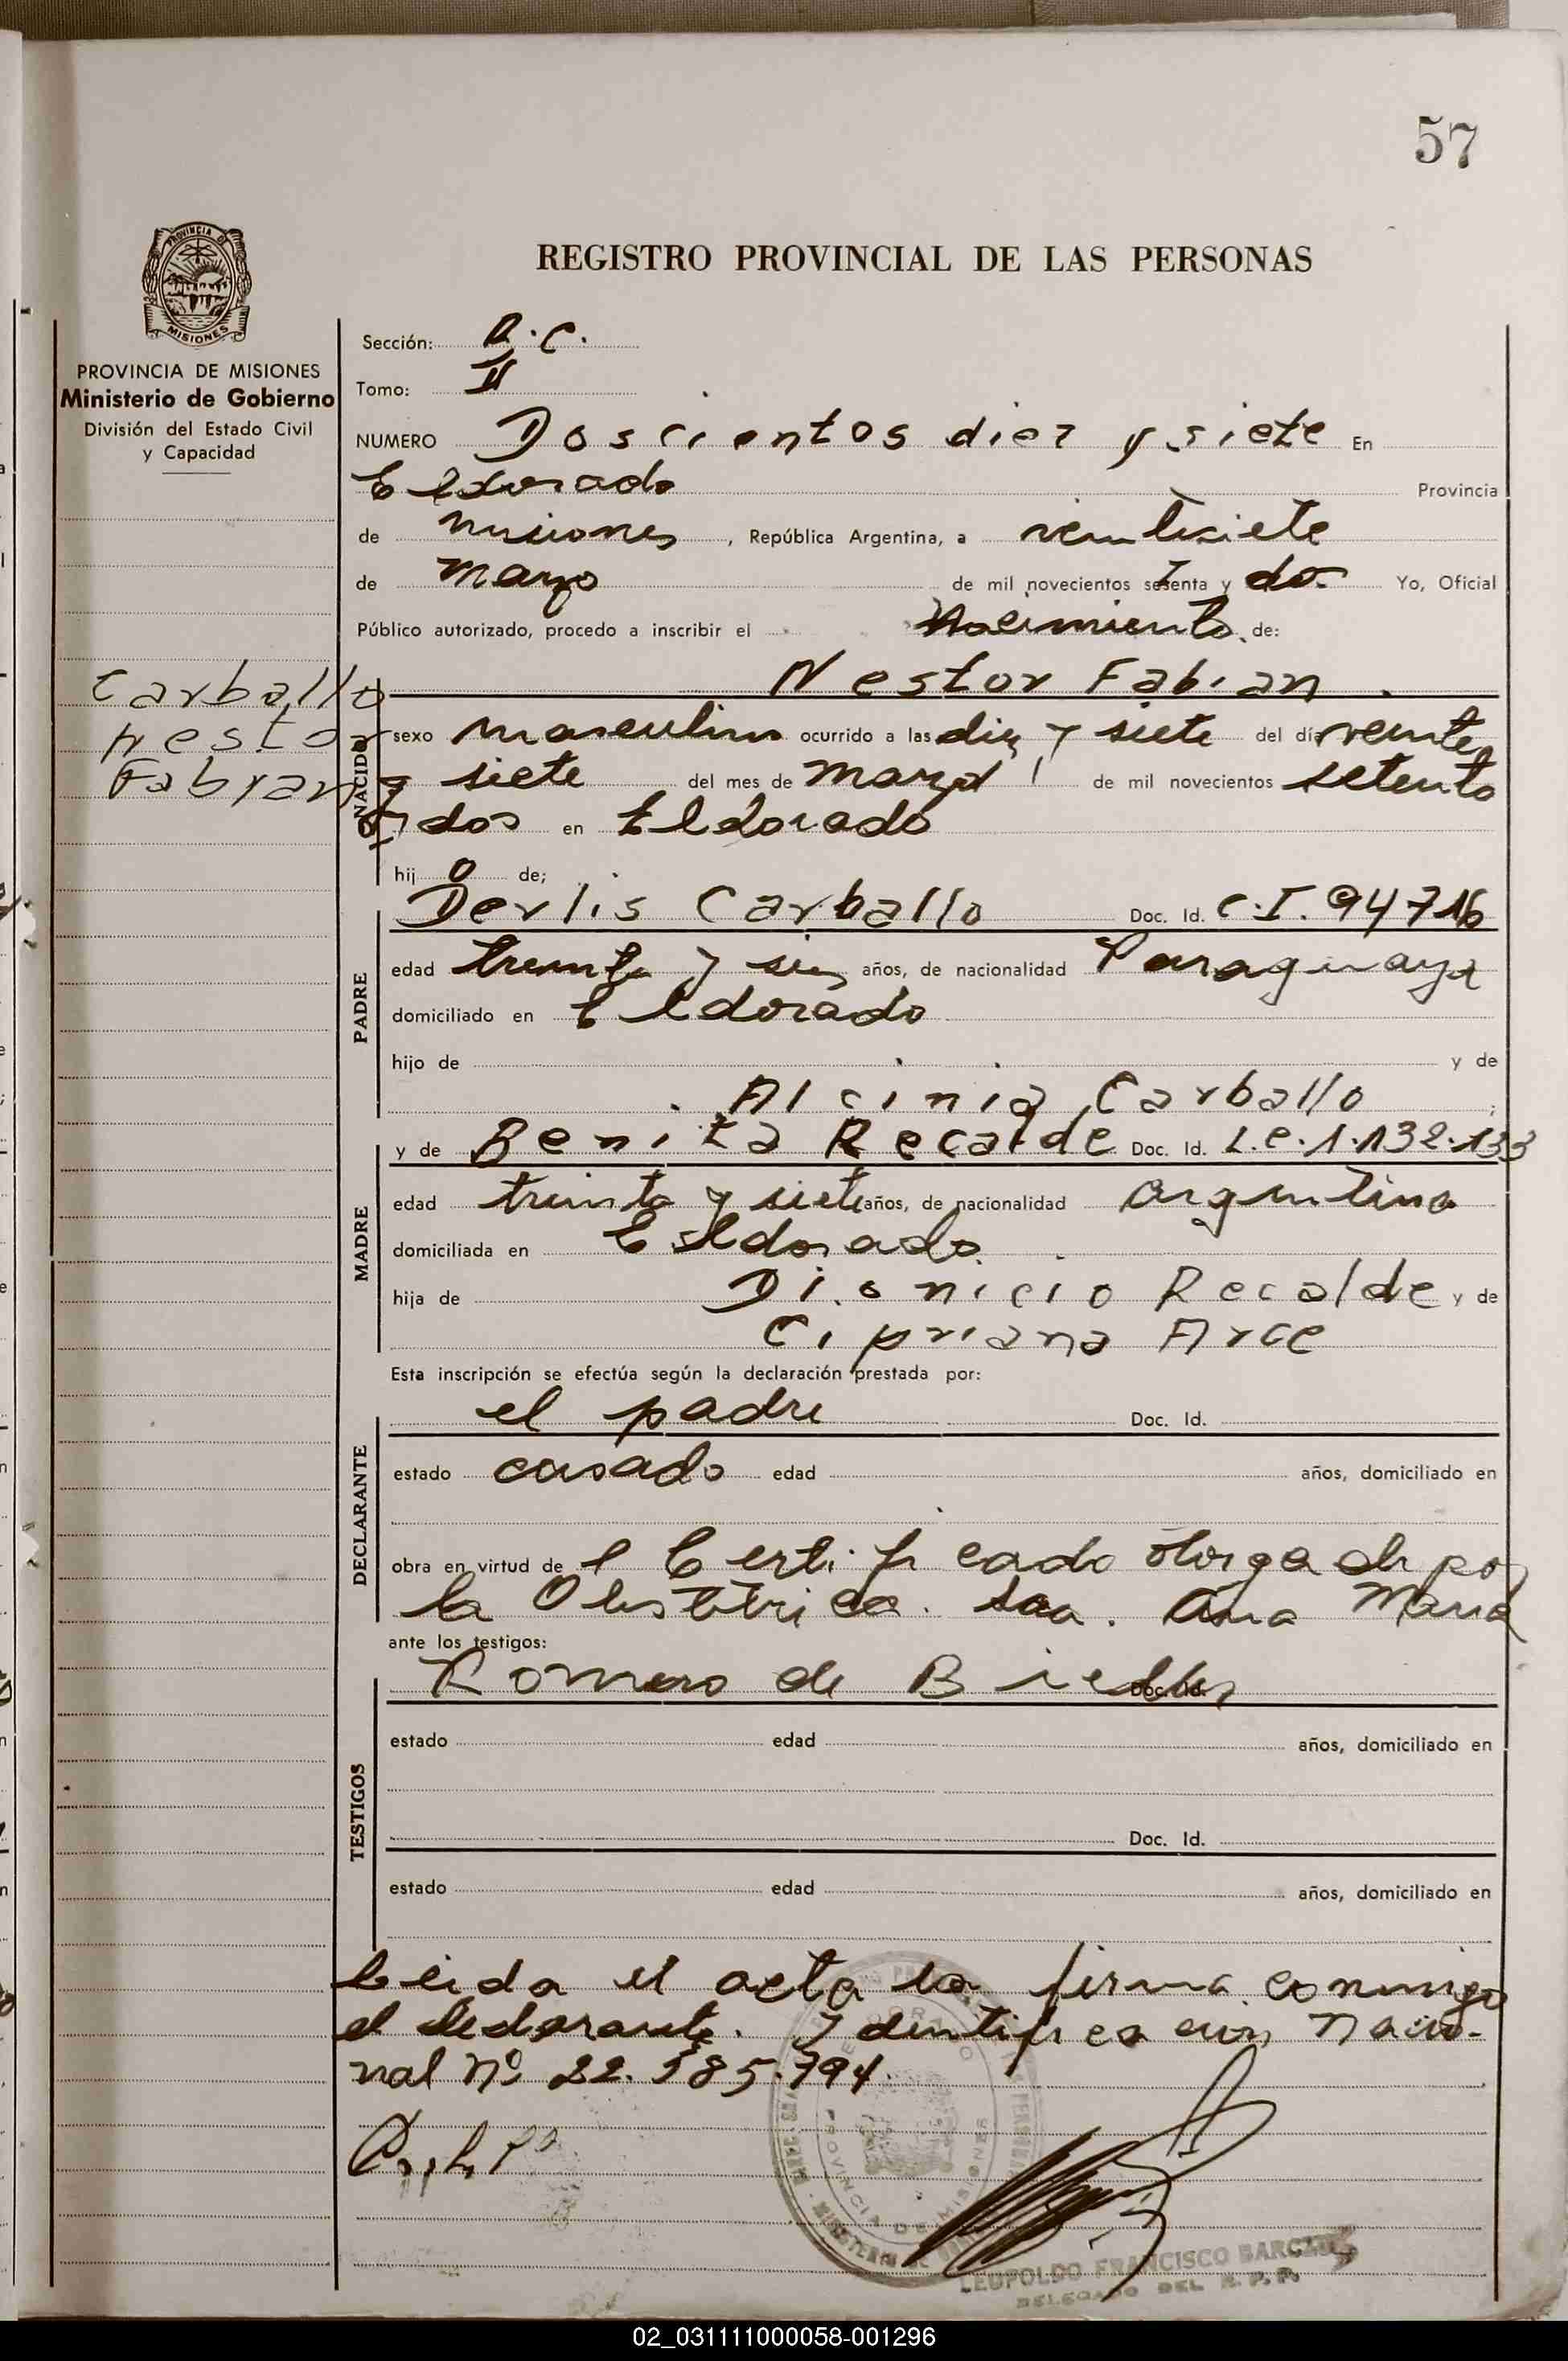 57
REGISTRO PROVINCIAL DE LAS PERSONAS
PROVINCIA DE MISIONES
Ministerio de Gobierno
División del Estado Civil
y Capacidad
Sección: R.C.
Tomo: II
NUMERO Doscientos diez y siete En
Eldorado Provincia
de Misiones, República Argentina, a veintisiete
de Marzo de mil novecientos setenta y dos Yo, Oficial
Público autorizado, procedo a inscribir el Nacimiento de:
Carballo
Nestor
Fabian
Nestor Fabian.
NACIDO
sexo masculino ocurrido a las diez y siete del día veinte
y siete del mes de marzo de mil novecientos setenta
y dos en Eldorado
hijo de;
PADRE
Derlis Carballo Doc. Id. C.I. 94716
edad treinta y seis años, de nacionalidad Paraguaya
domiciliado en Eldorado
hijo de y de
Alcinia Carballo;
MADRE
y de Benita Recalde Doc. Id. L.C.1.132.133
edad treinta y siete años, de nacionalidad argentina
domiciliada en Eldorado
hija de Dionicio Recalde y de
Cipriana Arce
Esta inscripción se efectúa según la declaración prestada por:
DECLARANTE
el padre Doc. Id.
estado casado edad años, domiciliado en
obra en virtud del Certificado otorgado por
la Obstétrica. Sra. Ana Maria
ante los testigos:
Romero de Doc. Id.
TESTIGOS
estado edad años, domiciliado en
Doc. Id.
estado edad años, domiciliado en
Leida el acta la firma conmigo
el declarante. Identificación Nacio-
nal Nº 22.585.794.
PROVINCIA DE MISIONES
LEOPOLDO FRANCISCO
DELEGADO DEL R. P. P.
02_031111000058-001296